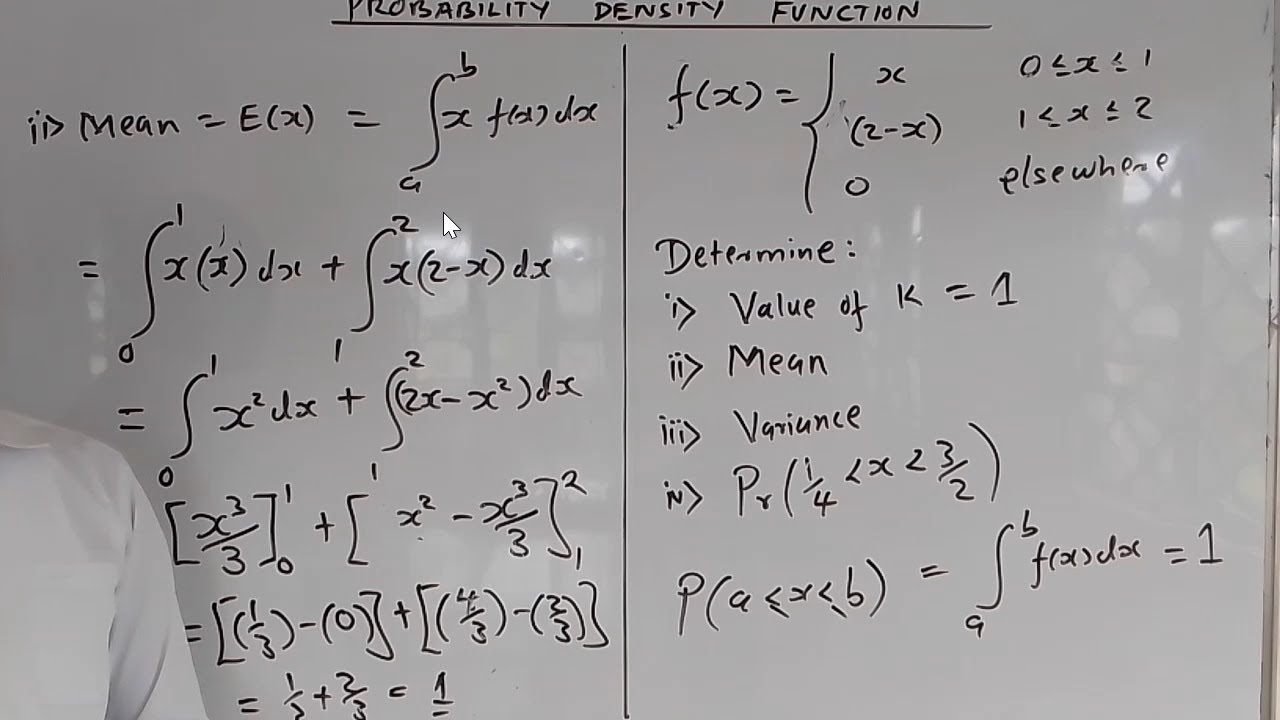 PROBABILITY DENSITY FUNCTION
ii> Mean = E(x) = ∫_a^b x f(x) dx
= ∫_0^1 x(x) dx + ∫_1^2 x(2-x) dx
= ∫_0^1 x² dx + ∫_1^2 (2x-x²) dx
[x³/3]_0^1 + [x² - x³/3]_1^2
= [(1/3)-(0)] + [(4/3)-(2/3)]
= 1/3 + 2/3 = 1
f(x) = { x 0 ≤ x ≤ 1
(2-x) 1 ≤ x ≤ 2
0 elsewhere
Determine:
i> Value of K = 1
ii> Mean
iii> Variance
iv> Pr(1/4 < x < 3/2)
P(a ≤ x ≤ b) = ∫_a^b f(x) dx = 1